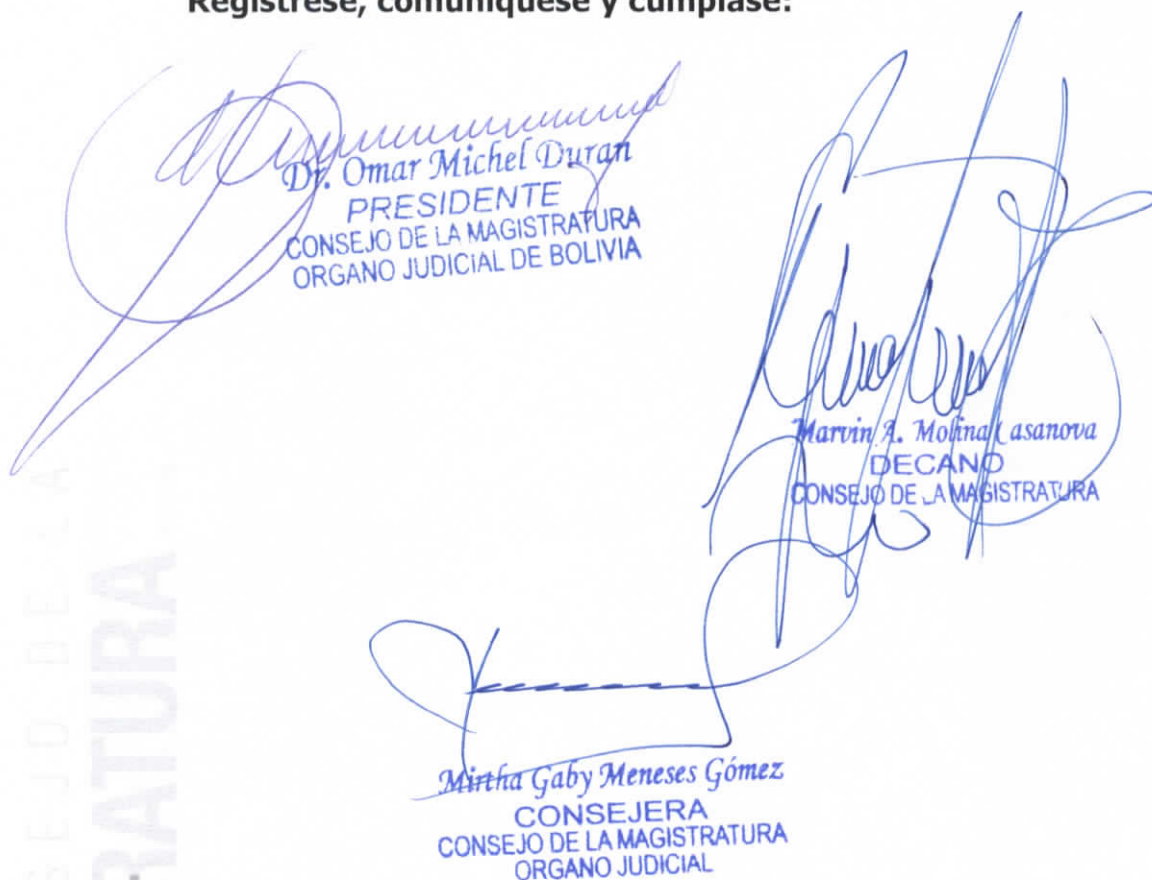 Regístrese, comuníquese y cúmplase.
Dr. Omar Michel Duran
PRESIDENTE
CONSEJO DE LA MAGISTRATURA
ORGANO JUDICIAL DE BOLIVIA
Marvin A. Molina Casanova
DECANO
CONSEJO DE LA MAGISTRATURA
Mirtha Gaby Meneses Gómez
CONSEJERA
CONSEJO DE LA MAGISTRATURA
ORGANO JUDICIAL
SEJO DE LA
RATURA